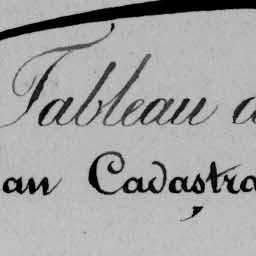 Tableau d
an Cadastra